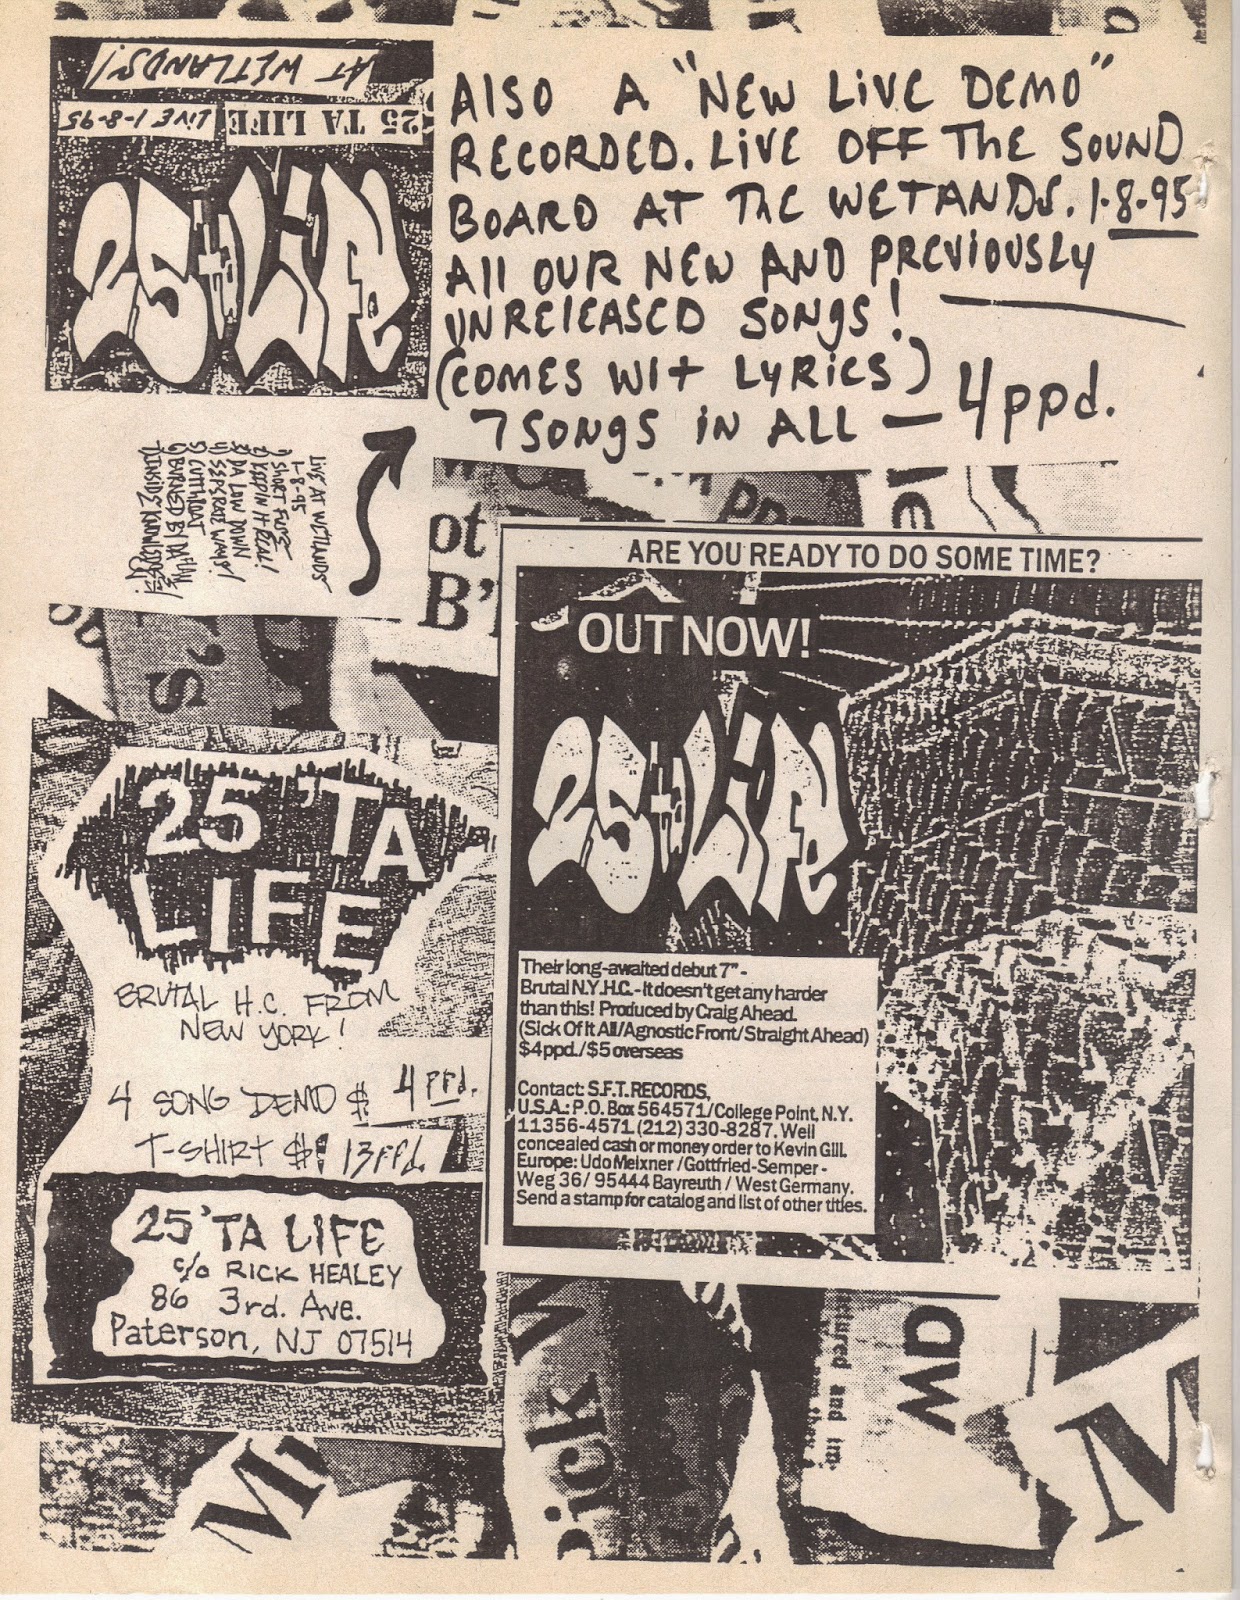 AT WETLANDS!
25 TA LIFE LIVE 1-8-95
25 ta Life
ALSO A "NEW LIVE DEMO"
RECORDED. LIVE OFF THE SOUND
BOARD AT THE WETANDS. 1-8-95
All OUR NEW AND PREVIOUSLY
UNRELEASED SONGS!
(COMES WIT LYRICS)
7 SONGS IN ALL — 4ppd.
LIVE AT WETLANDS
1-8-95
1) SHORT FUSE
2) KEEPIN IT REAL!
3) DA LOW DOWN
4) SEPERATE WAYS!
5) CUTTHROAT
6) BURNED BY DA
7) INSIDE KNOWLEDGE!
ot
B'
ARE YOU READY TO DO SOME TIME?
OUT NOW!
25 ta Life
Their long-awaited debut 7" -
Brutal N.Y.H.C. - It doesn't get any harder
than this! Produced by Craig Ahead.
(Sick Of It All/Agnostic Front/Straight Ahead)
$4ppd./$5 overseas
Contact: S.F.T. RECORDS,
U.S.A.: P.O. Box 564571/College Point, N.Y.
11356-4571. (212) 330-8287. Well
concealed cash or money order to Kevin Gill.
Europe: Udo Meixner / Gottfried-Semper-
Weg 36/ 95444 Bayreuth / West Germany.
Send a stamp for catalog and list of other titles.
25 'TA
LIFE
BRUTAL H.C. FROM
NEW YORK!
4 SONG DEMO $ 4 ppd.
T-SHIRT $: 13 ppd.
25 'TA LIFE
c/o RICK HEALEY
86 3rd. Ave.
Paterson, NJ 07514
ick
and im
aw
M